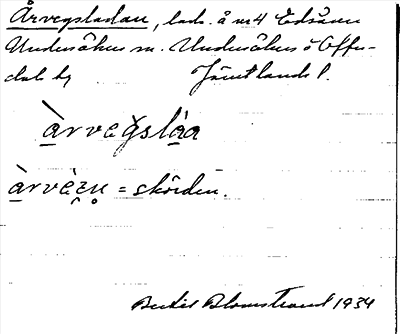 Årvegsladan, lada å n:4 Edsåsen
Undersåkers sn. Undersåkers o Offer-
dals tg Jämtlands l.
àrveg̀slàa
àrvèzṇ = skörden.
Bertil Blomstrand 1934